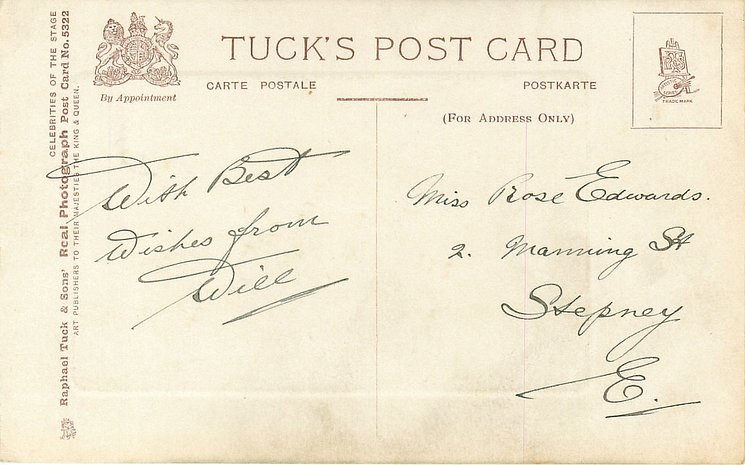 CELEBRITIES OF THE STAGE
Raphael Tuck & Sons' Real Photograph Post Card No. 5322
ART PUBLISHERS TO THEIR MAJESTIES THE KING & QUEEN.
By Appointment
TUCK'S POST CARD
CARTE POSTALE
POSTKARTE
(FOR ADDRESS ONLY)
TRADE MARK
With Best
Wishes from
Will
Miss Rose Edwards.
2. Manning St
Stepney
E.